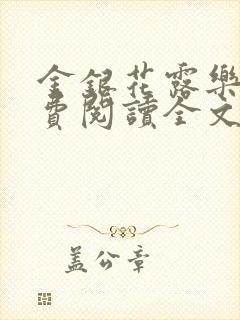 金銀花露樂
費閱讀全文
蓋公章